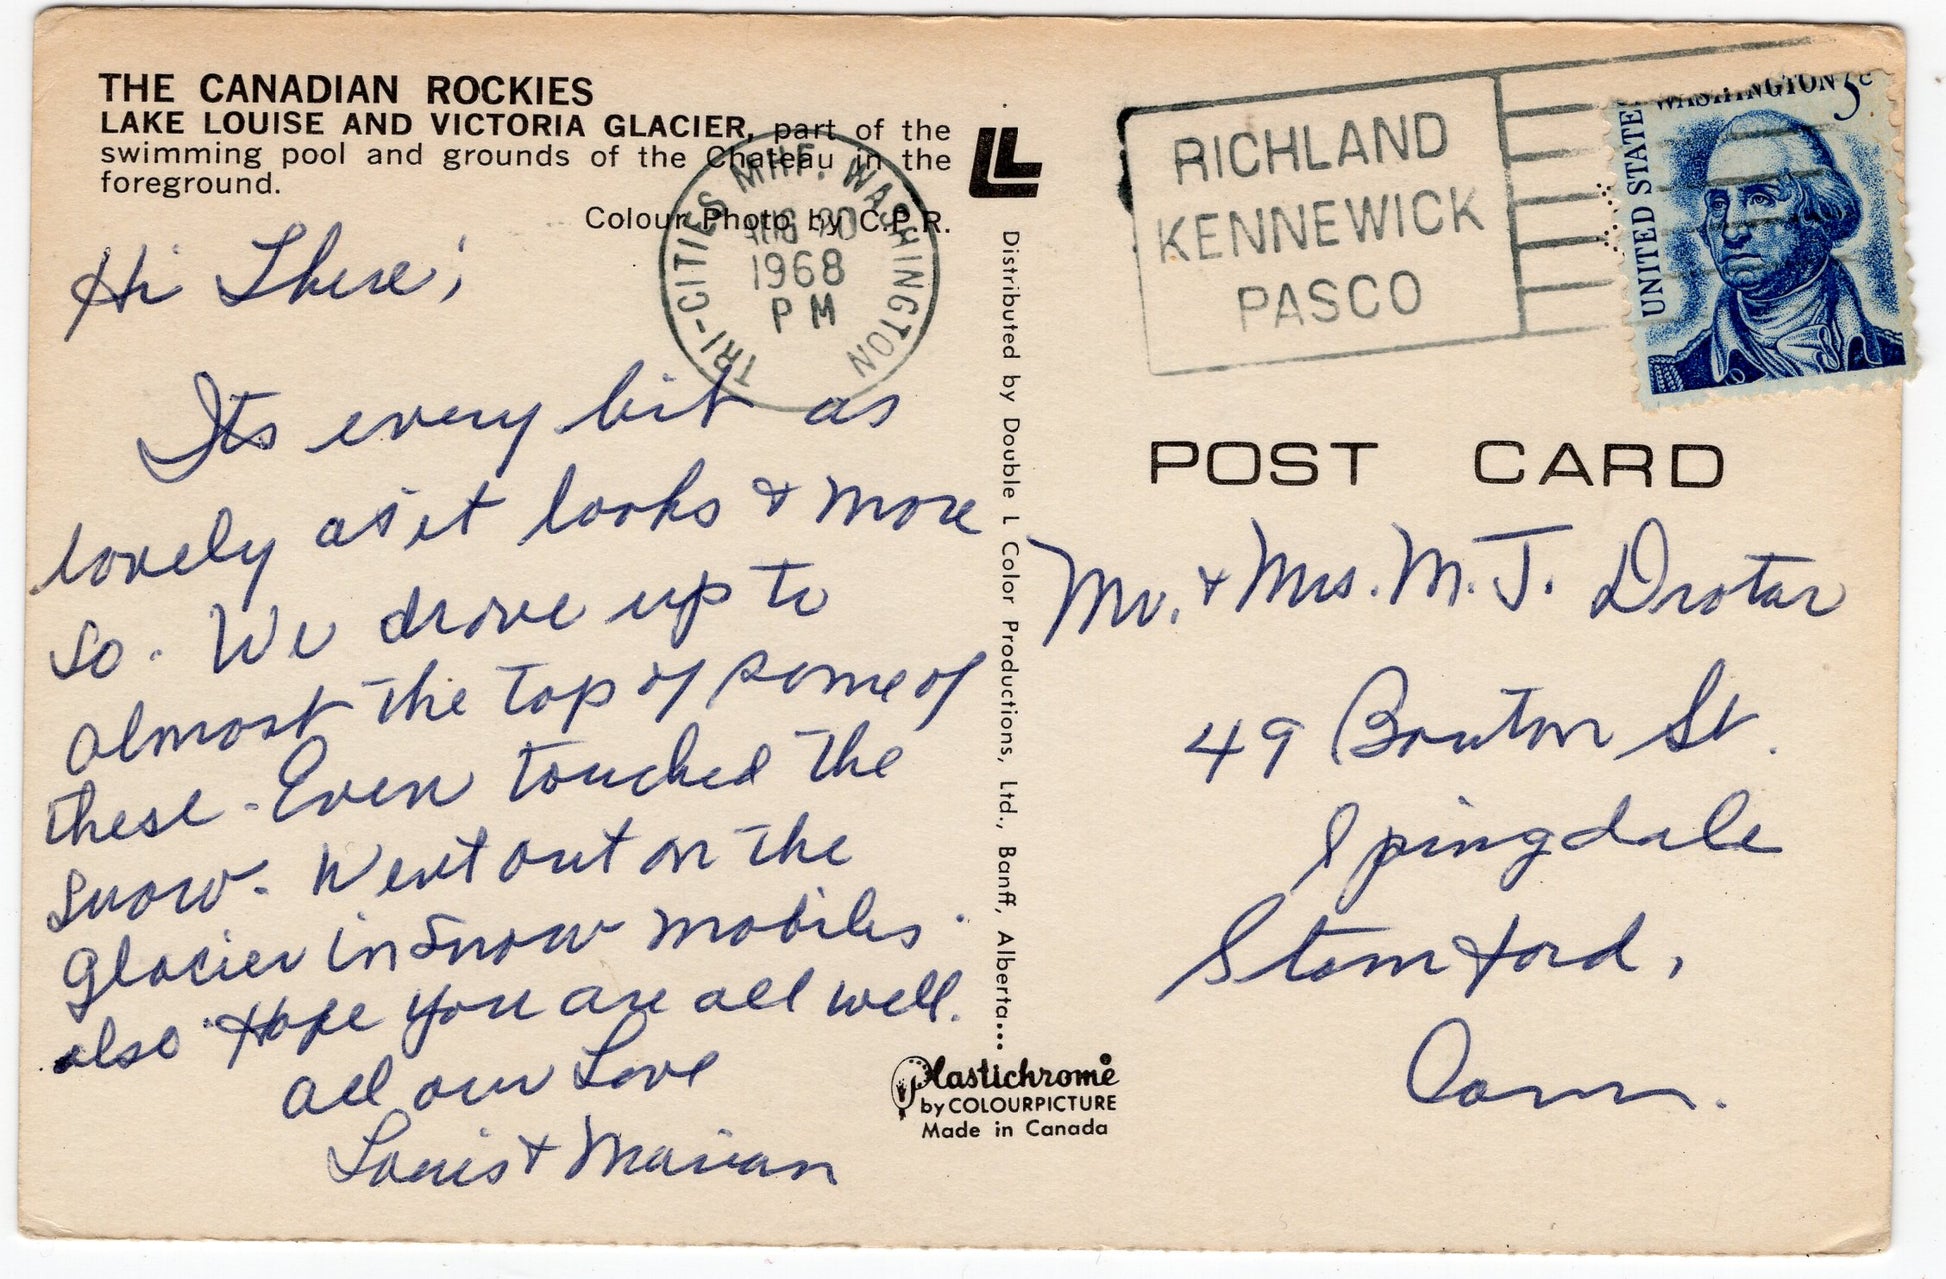 THE CANADIAN ROCKIES
LAKE LOUISE AND VICTORIA GLACIER, part of the
swimming pool and grounds of the Chateau in the
foreground.
Colour Photo by C.P.R.
TRI-CITIES MHF. WASHINGTON
AUG 20
1968
PM
Hi There;
Its every bit as
lovely as it looks & more
so. We drove up to
almost the top of some of
these. Even touched the
snow. Went out on the
glacier in snow mobiles
also. Hope you are all well.
All our Love
Louis & Marian
LL
Distributed by Double L Color Productions, Ltd., Banff, Alberta...
Plastichrome®
by COLOURPICTURE
Made in Canada
RICHLAND
KENNEWICK
PASCO
UNITED STATES
WASHINGTON 5c
POST CARD
Mr. & Mrs. M. J. Drotar
49 Bouton St.
Spingdale
Stamford,
Conn.